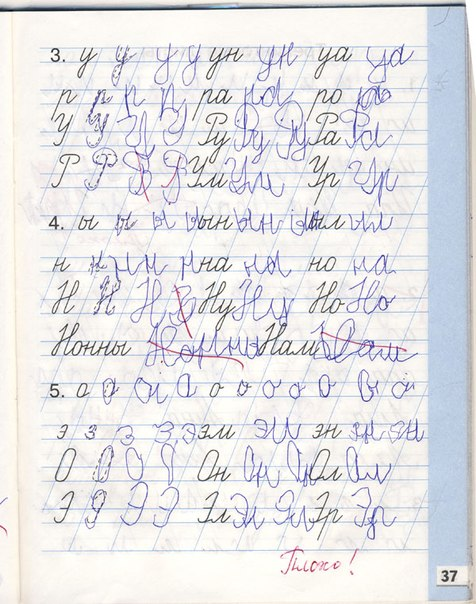 3. у у у у ун ун уа уа
р р р р ра ра ро ро
У У У У Ру Ру Ру Ра Ра
Р Р Р Р Ум Ум Ур Ур
4. ы ы ы ы ын ын ын ыл ыл
н н н н на ны но на
Н Н Н Ну Ну Но Но
Нонны Нам
5. о о о о о о о о о
э з з з э эм эм эн эн эн
О О О О Он Он Он Ол Ол
Э Э Э Э Эл Эл Эл Эр Эр
Плохо!
37